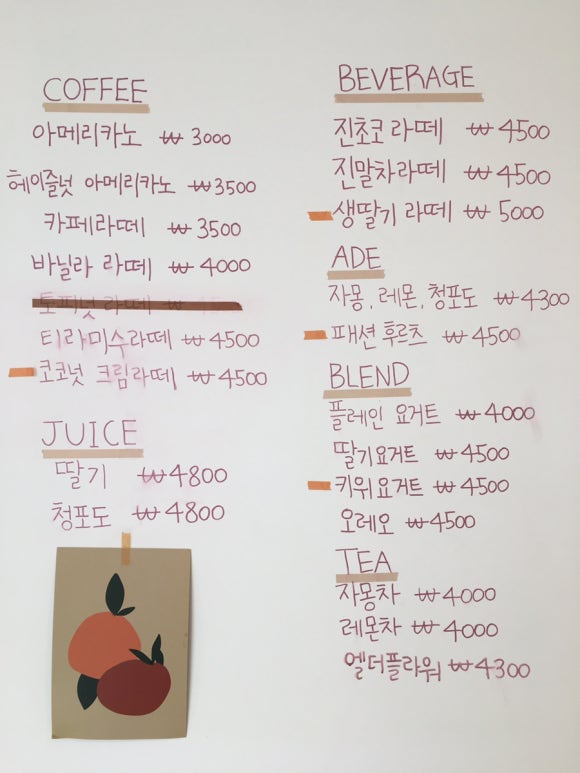 COFFEE
아메리카노 ₩ 3000
헤이즐넛 아메리카노 ₩3500
카페라떼 ₩ 3500
바닐라 라떼 ₩ 4000
토피넛 라떼 ₩
티라미수라떼 ₩ 4500
코코넛 크림라떼 ₩ 4500
JUICE
딸기 ₩4800
청포도 ₩4800
BEVERAGE
진초코 라떼 ₩ 4500
진말차라떼 ₩ 4500
생딸기 라떼 ₩ 5000
ADE
자몽, 레몬, 청포도 ₩ 4300
패션 후르츠 ₩ 4500
BLEND
플레인 요거트 ₩ 4000
딸기요거트 ₩ 4500
키위요거트 ₩ 4500
오레오 ₩ 4500
TEA
자몽차 ₩ 4000
레몬차 ₩ 4000
엘더플라워 ₩ 4300